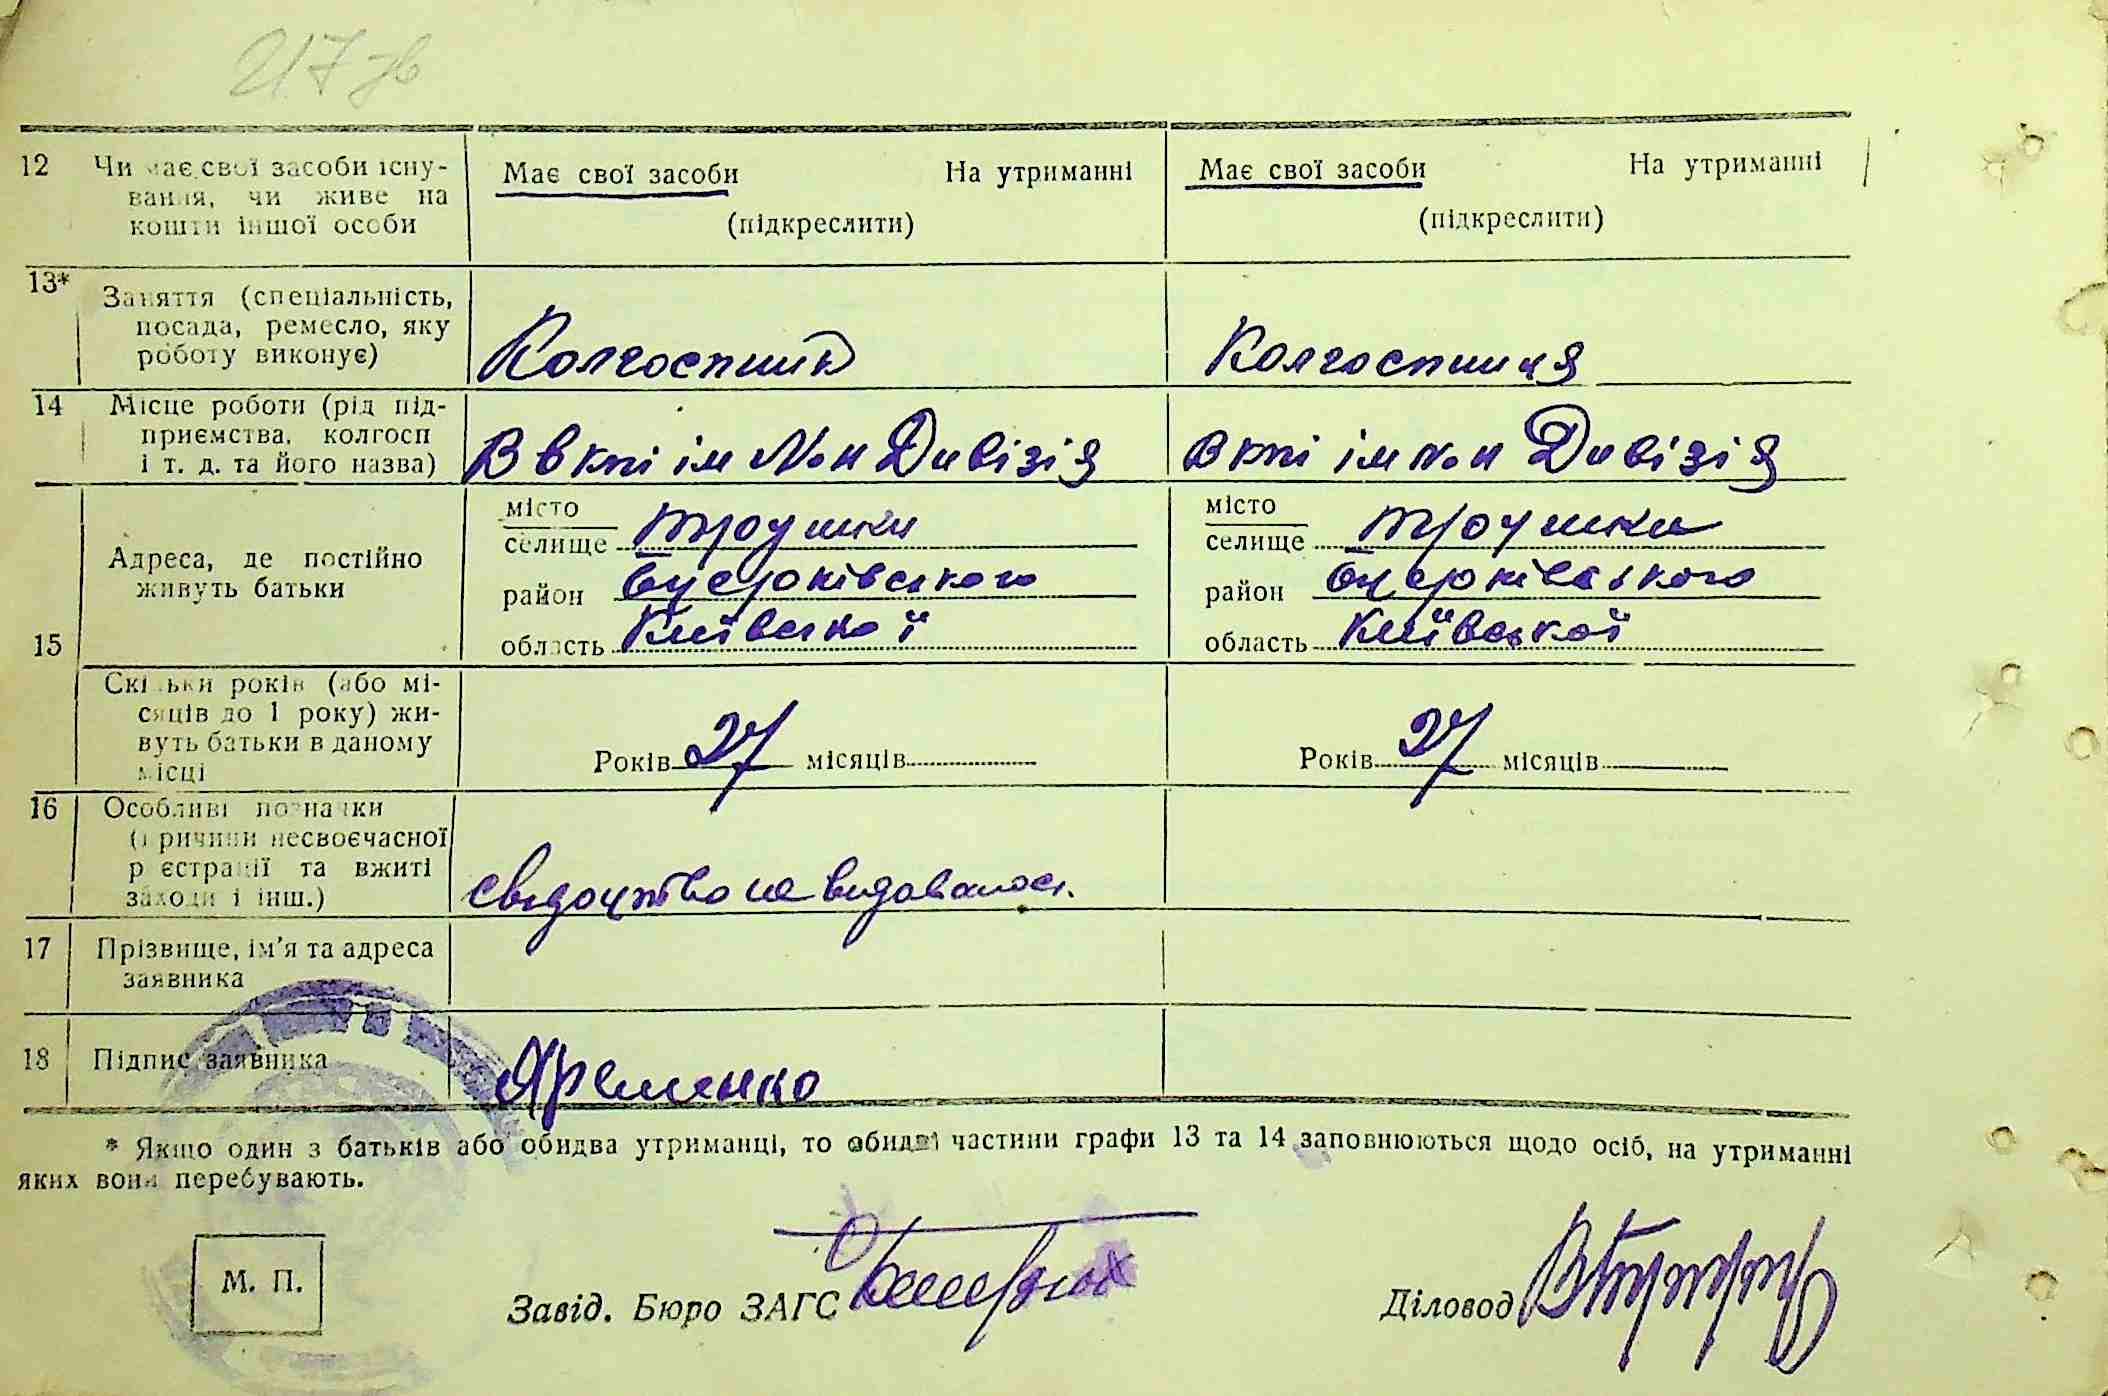 217 зв
12 Чи має свої засоби існу-
вання, чи живе на
кошти іншої особи
Має свої засоби На утриманні
(підкреслити)
Має свої засоби На утриманні
(підкреслити)
13* Заняття (спеціальність,
посада, ремесло, яку
роботу виконує)
Колгоспник
Колгоспниця
14 Місце роботи (рід під-
приємства, колгосп
і т. д. та його назва)
В в кпі ім Дивізія
В кпі ім Дивізія
15 Адреса, де постійно
живуть батьки
місто
селище Трушки
район
область Київської
місто
селище Трушки
район
область Київської
Скільки років (або мі-
сяців до 1 року) жи-
вуть батьки в даному
місці
Років 27 місяців
Років 27 місяців
16 Особливі позначки
(причини несвоєчасної
реєстрації та вжиті
заходи і інш.)
свідоцтво не видавалось.
17 Прізвище, ім'я та адреса
заявника
18 Підпис заявника
Яременко
* Якщо один з батьків або обидва утриманці, то обидві частини графи 13 та 14 заповнюються щодо осіб, на утриманні
яких вони перебувають.
М. П.
Завід. Бюро ЗАГС
Діловод